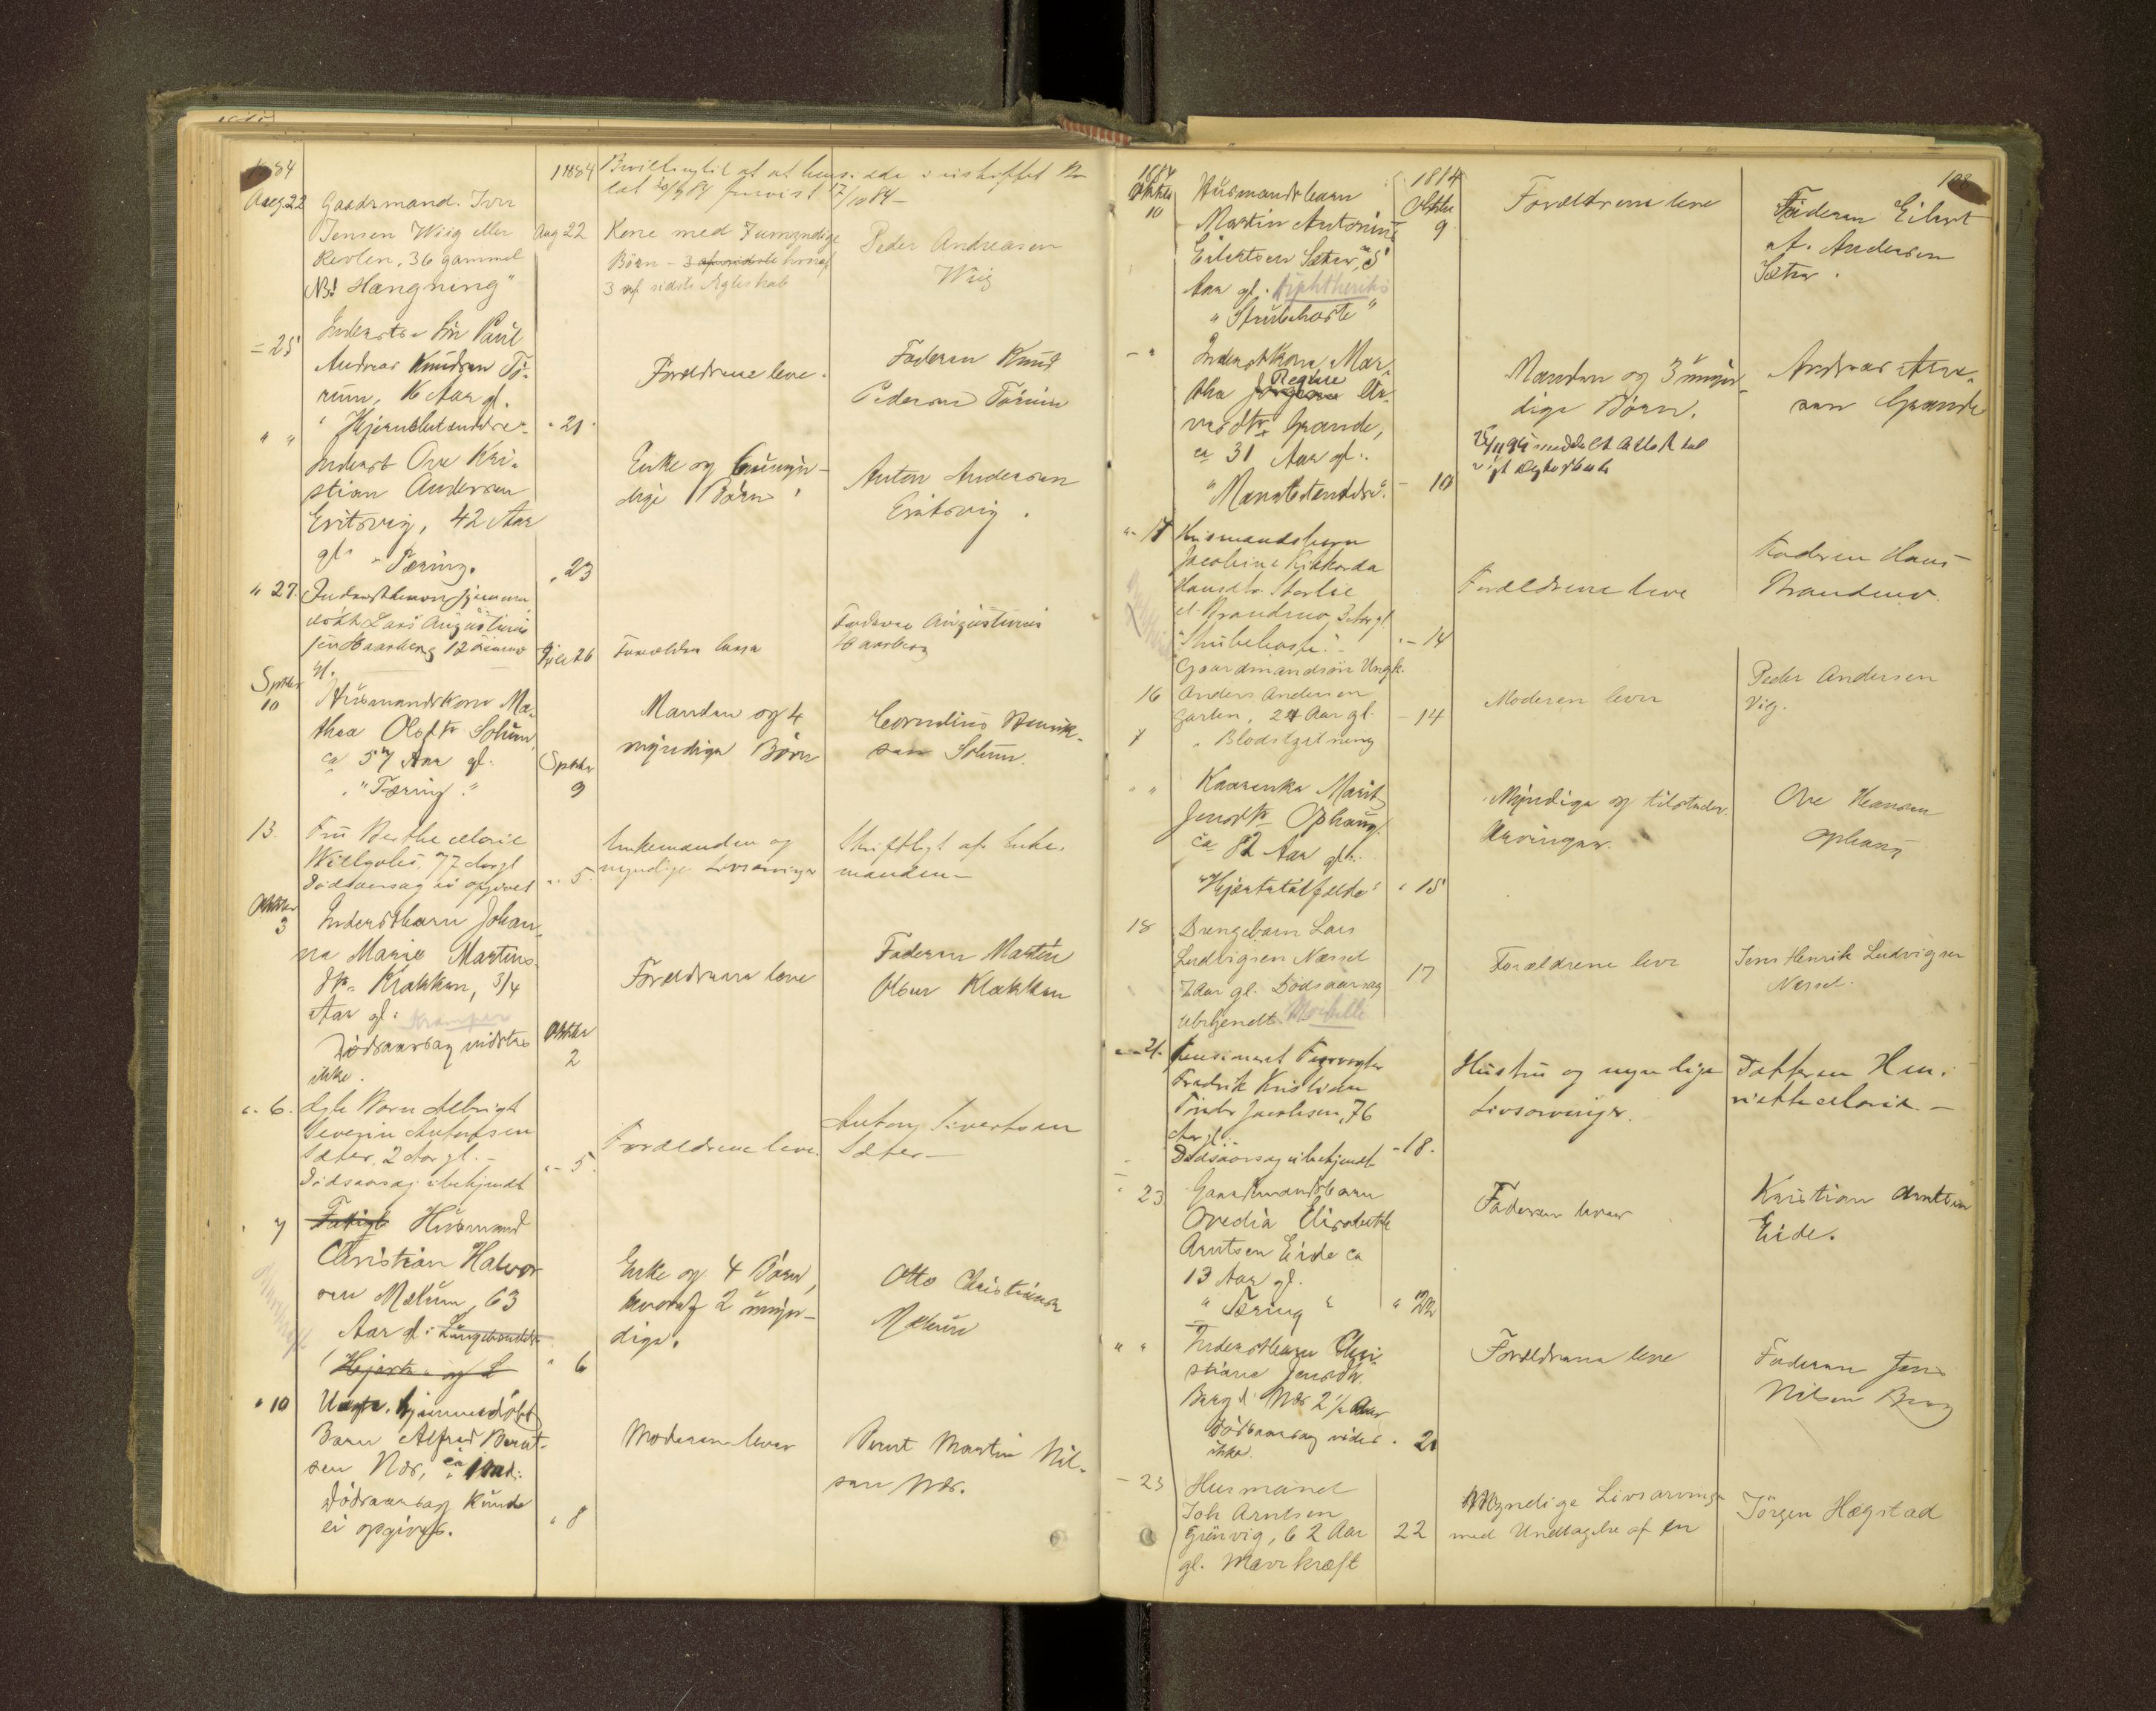 1884
1884 Bevilling til at at hens. i uskiftet Bo
dat 30/9 84 forevist 17/10 84 –
Aug. 22 Gaardmand Iver
Jensen Wiig eller
Revlen, 36 gammel
NB! Hængning"
Aug 22
Kone med 7 umyndige
Børn – 3 hvoraf
3 af sidste Ægteskab
Peder Andreasen
Wiig
– 25 Inderst Søn Paul
Andreas Knudsen Tö-
rum, 16 Aar gl.
" Hjernebetændelse"
" 21
Forældrene leve.
Faderen Knud
Pedersen Törum
" " Inderst Ove Kri-
stian Andersen
Eritsvig, 42 Aar
gl. "Tæring.
" 23
Enke og 6 umyn-
dige Børn.
Anton Andersen
Eritsvig.
" 27. Inderstbarn hjemme
døbt Lars Augustinus
sen Haarberg 12
gl.
Juli 26
Forældre
Faderen Augustinus
Haarberg
Septbr
10 Husmandskone Ma-
thea Olsdtr Solum,
ca 57 Aar gl.
"Tæring."
Septbr
9
Manden og 4
myndige Børn
Cornelius Henrik-
sen Solum.
13. Fru Berthe Marie
77 Aar gl
Dödsaarsag ei opgivet
" 5.
Enkemanden og
myndige Livsarvinger
Skriftligt af Enke-
manden –
Oktober
3 Inderstbarn Johan-
na Marie Martins-
dtr Klakken, 3/4
Aar gl. Kramper
Dödsaarsag vidstes
ikke.
Oktbr
2
Forældrene leve
Faderen Martin
Olsen Klakken
" 6. Ægte Barn Albrigt
Severin Antonsen
Sæter, 2 Aar gl. –
Dödsaarsag ubekjendt
" – 5.
Forældrene leve.
Anton Sivertsen
Sæter –
" 7 Fattigl Husmand
Christian Halvor-
sen Mælum, 63
Aar gl: Lungebetændelse
Hjerte- og L
" 6
Enke og 4 Børn,
hvoraf 2 umyn-
dige.
Otto Christiansen
Mælum
" 10 Uægte, hjemmedöbt
Barn Alfred Bernt-
sen Næs, ca 1 Md:
Dödsaarsag kunde
ei opgives.
" 8
Moderen lever
Bernt Martin Nil-
sen Næs.
108
1884
Oktober
10 Husmandsbarn
Martin Antonius
Eilertsen Sæter, 5
Aar gl. Diphtheritis
"Strubehoste"
1884
Oktbr
9
Forældrene leve
Faderen Eilert
af. Andersen
Sæter.
– " Inderstkone Mar-
tha Regine Ar-
nesdtr Grande,
ca 31 Aar gl..
"Mavebetændelse".
– 10
Manden og 3 umyn-
dige Børn.
meddelt Attest til
nyt Ægteskab
Andreas Arne-
sen Grande
" 17 Husmandsbarn
Jacobine Rikkarda
Hansdtr Storlie
el. Brandmo, 3 Aar gl
"Strubehoste."
" – 14
Forældrene leve
Faderen Hans
Brandmo.
16 Gaardmandssön Ungk.
Anders Andersen
Garten, 24 Aar gl.
"Blodstyrtning
– 14
Moderen lever
Peder Andersen
Vig.
" " Kaarenka Marit
Jensdtr Ophaug.
ca 82 Aar gl..
"Hjertetilfælde"
" 15
Myndige og tilstede-
Arvinger.
Ove Hansen
Ophaug
18 Drengebarn Lars
Ludvigsen Næssel
7 Aar gl. Dödsaarsag
ubekjendt.
17
Forældrene leve
Jens Henrik Ludvigsen
Næssel.
" – 21. Pensioneret Fyrvogter
Fredrik Kristian
Jacobsen, 76
Aar gl. –
Dödsaarsag ubekjendt
– 18.
Hustru og myndige
Livsarvinger.
Datteren Hen-
riette Marie. –
" 23 Gaardmandsbarn
Ovedia Elisabeth
Arntsen Eide ca
13 Aar gl.
"Tæring"
" 22
Faderen lever
Kristian Arntsen
Eide.
" " Inderstbarn Chri-
stiane Jensdtr.
Berg Næs 2 1/2 Aar
Dödsaarsag vides
ikke.
" 21
Forældrene leve
Faderen Jens
Nilsen Berg
– 23 Husmand
Joh Arntsen
Grönvig, 62 Aar
gl. Mavekræft
22
Myndige Livsarvinger
med Undtagelse af en
Jörgen Hægstad